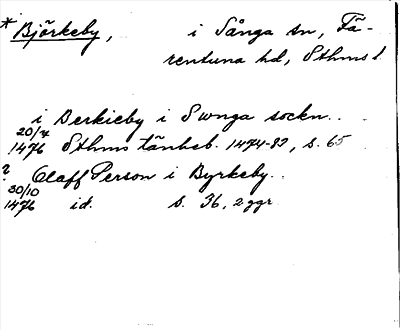 * Björkeby, i Sånga sn, Fä-
rentuna hd, Sthms l.
i Berkieby i Swnga sockn..
20/7
1476 Sthms tänkeb. 1474-83, s. 65
? Olaff Person i Byrkeby..
30/10
1476 id. s. 36, 2 ggr